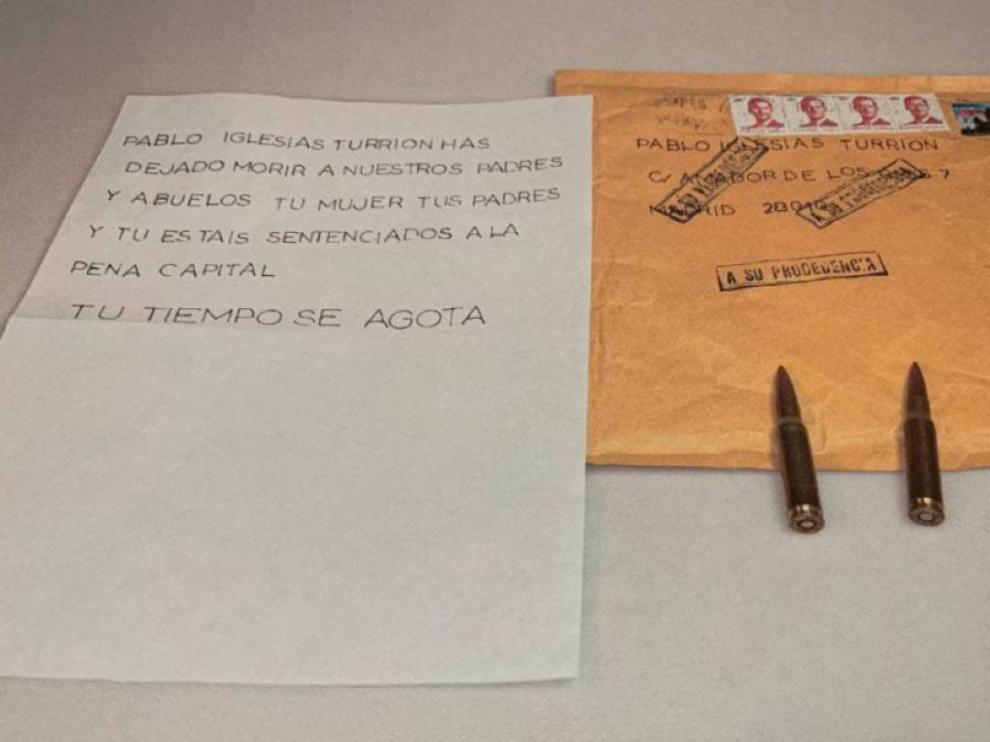 PABLO IGLESIAS TURRION HAS
DEJADO MORIR A NUESTROS PADRES
Y ABUELOS TU MUJER TUS PADRES
Y TU ESTAIS SENTENCIADOS A LA
PENA CAPITAL
TU TIEMPO SE AGOTA
PABLO IGLESIAS TURRION
C/ AMADOR DE LOS 7
MADRID
A SU PROCEDENCIA